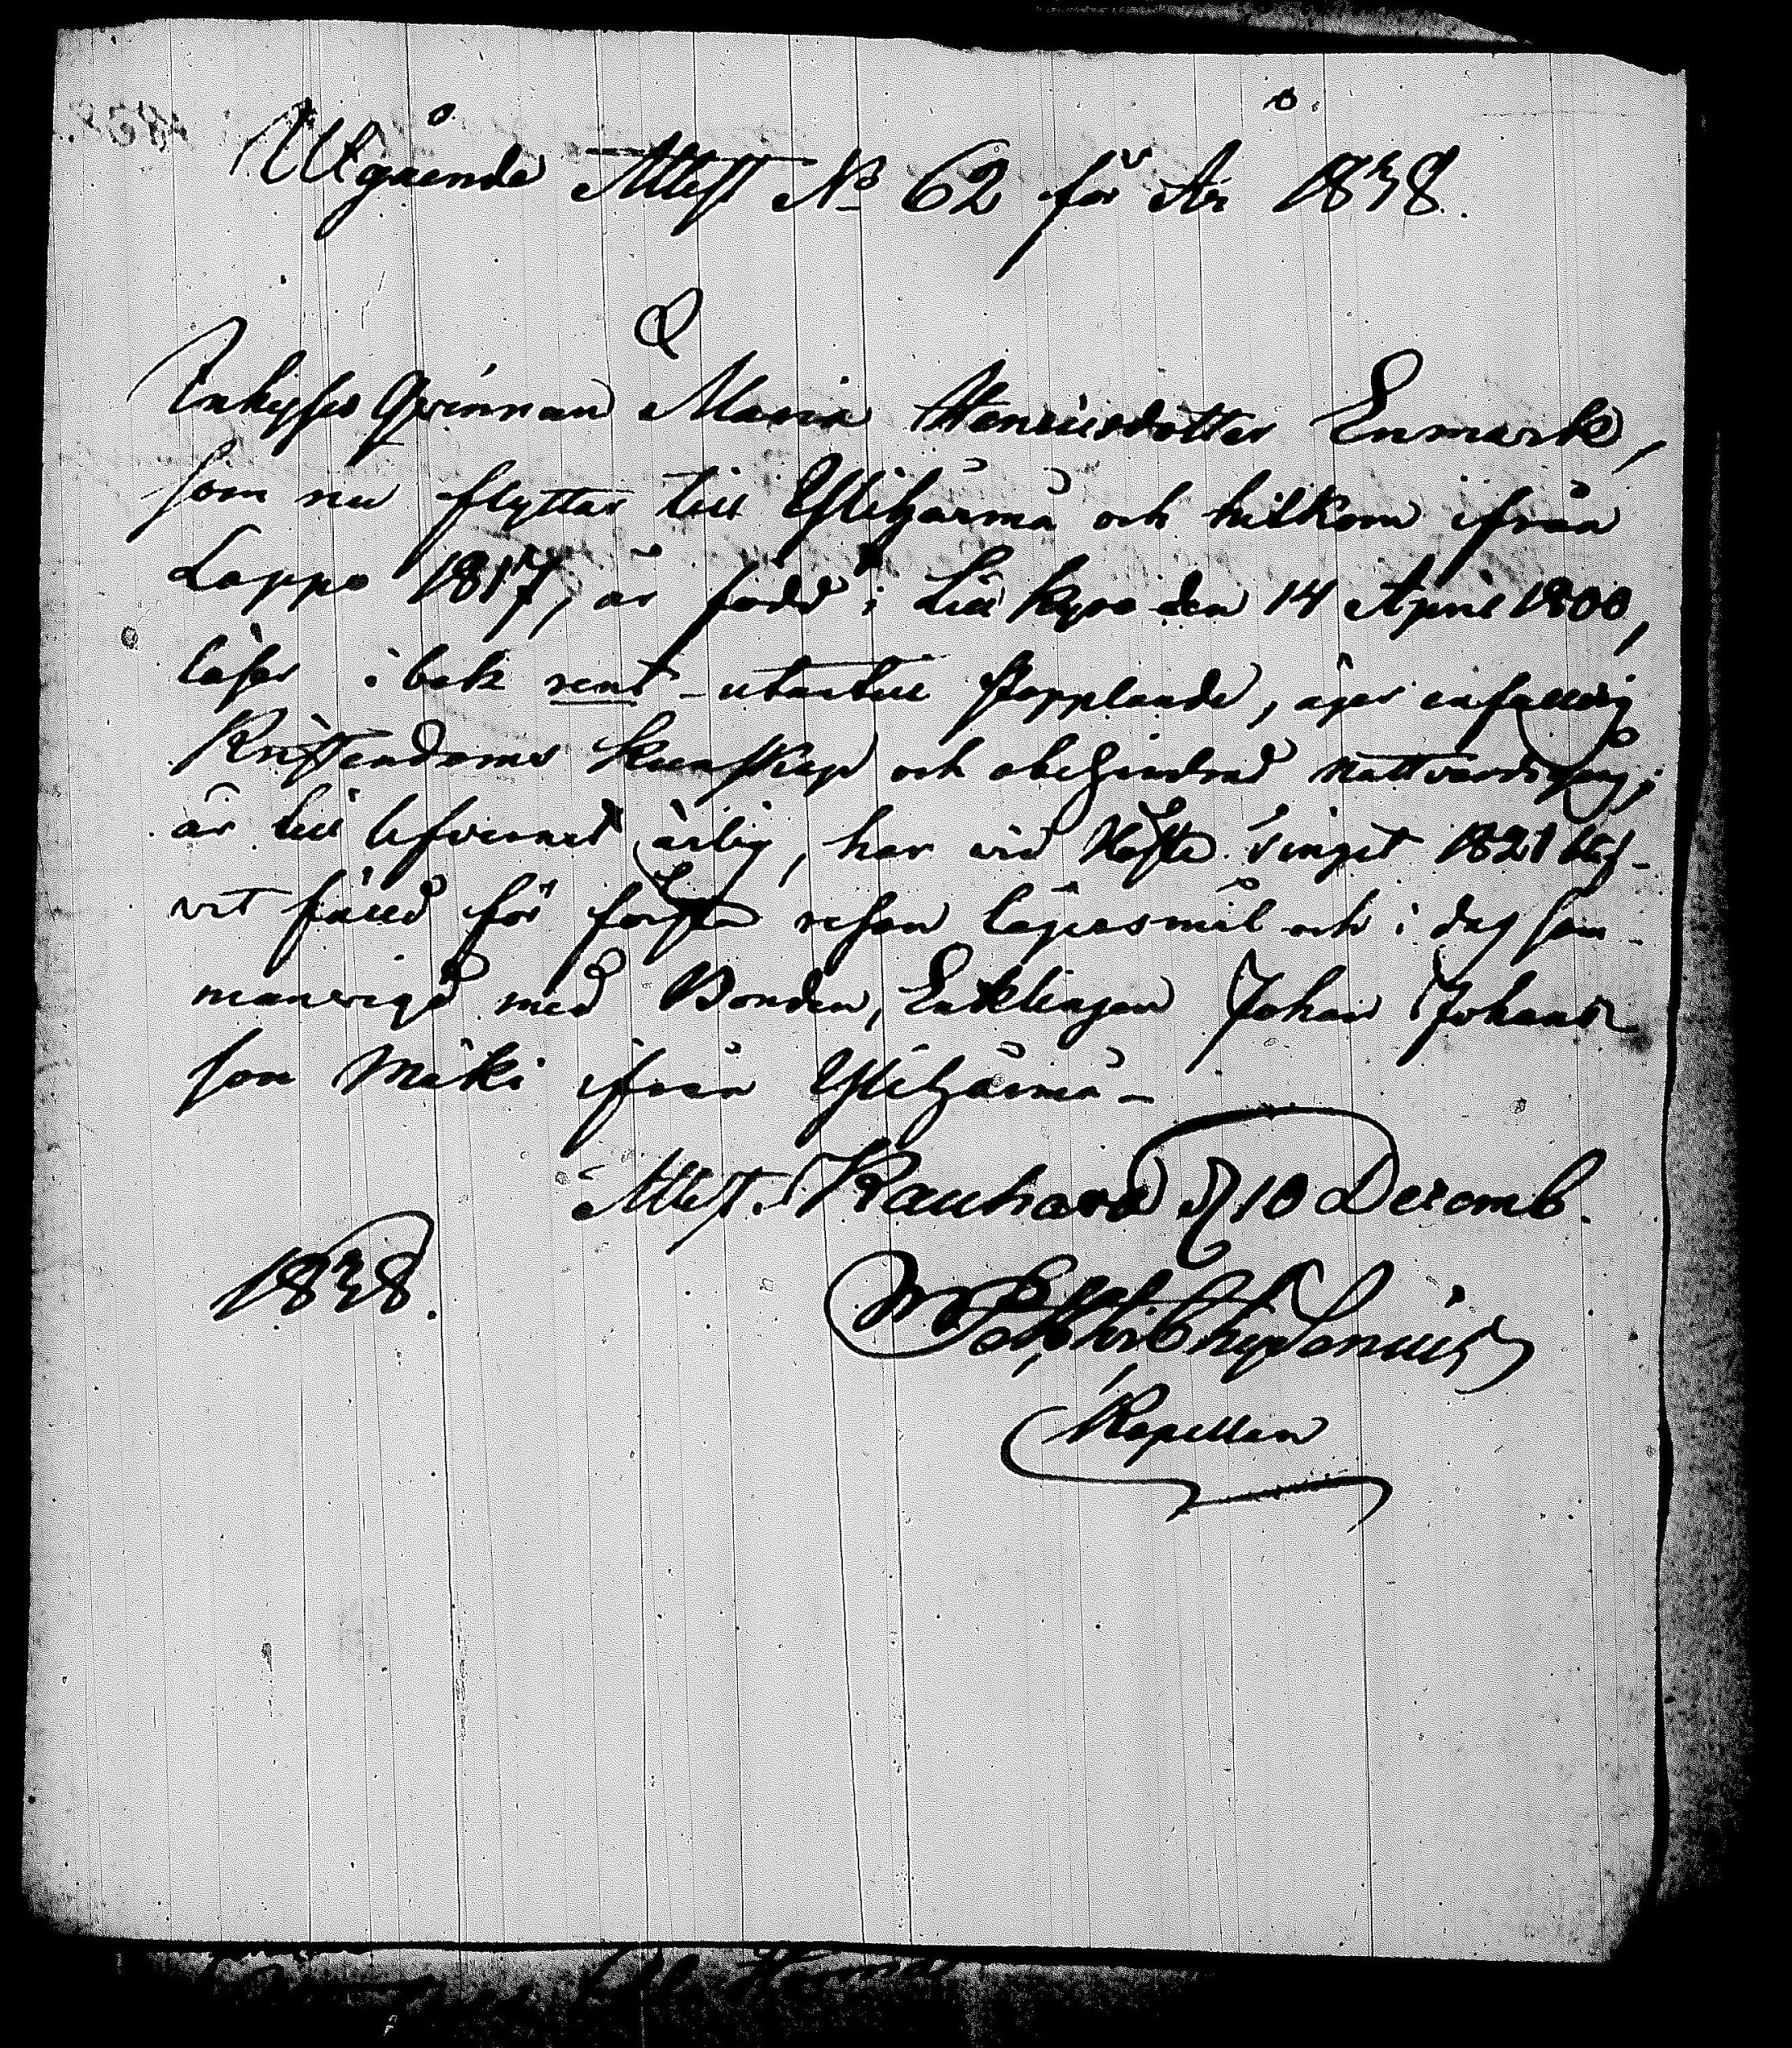 Utgående Attest No 62 för År 1838.
Inhyses Qvinnan Maria Henricsdotter Enmark,
som nu flyttar till Ylihärmä och hitkom ifrån
Lappo 1817, är född i Lillkyro den 14 April 1800,
läser i bok rent - utantill stapplande, äger enfaldig
Kristendoms kunskap och obehindrad nattvardsgång;
är till lefvernet ärlig, har vid Höste Tinget 1821 blif-
vit fälld för första resan lägersmål och i dag sam-
manvigd med Bonden, Enklingen Johan Johans-
son Mäki ifrån Ylihärmä -
Attest. Kauhava d 10 Decemb.
1838.
Kapellan